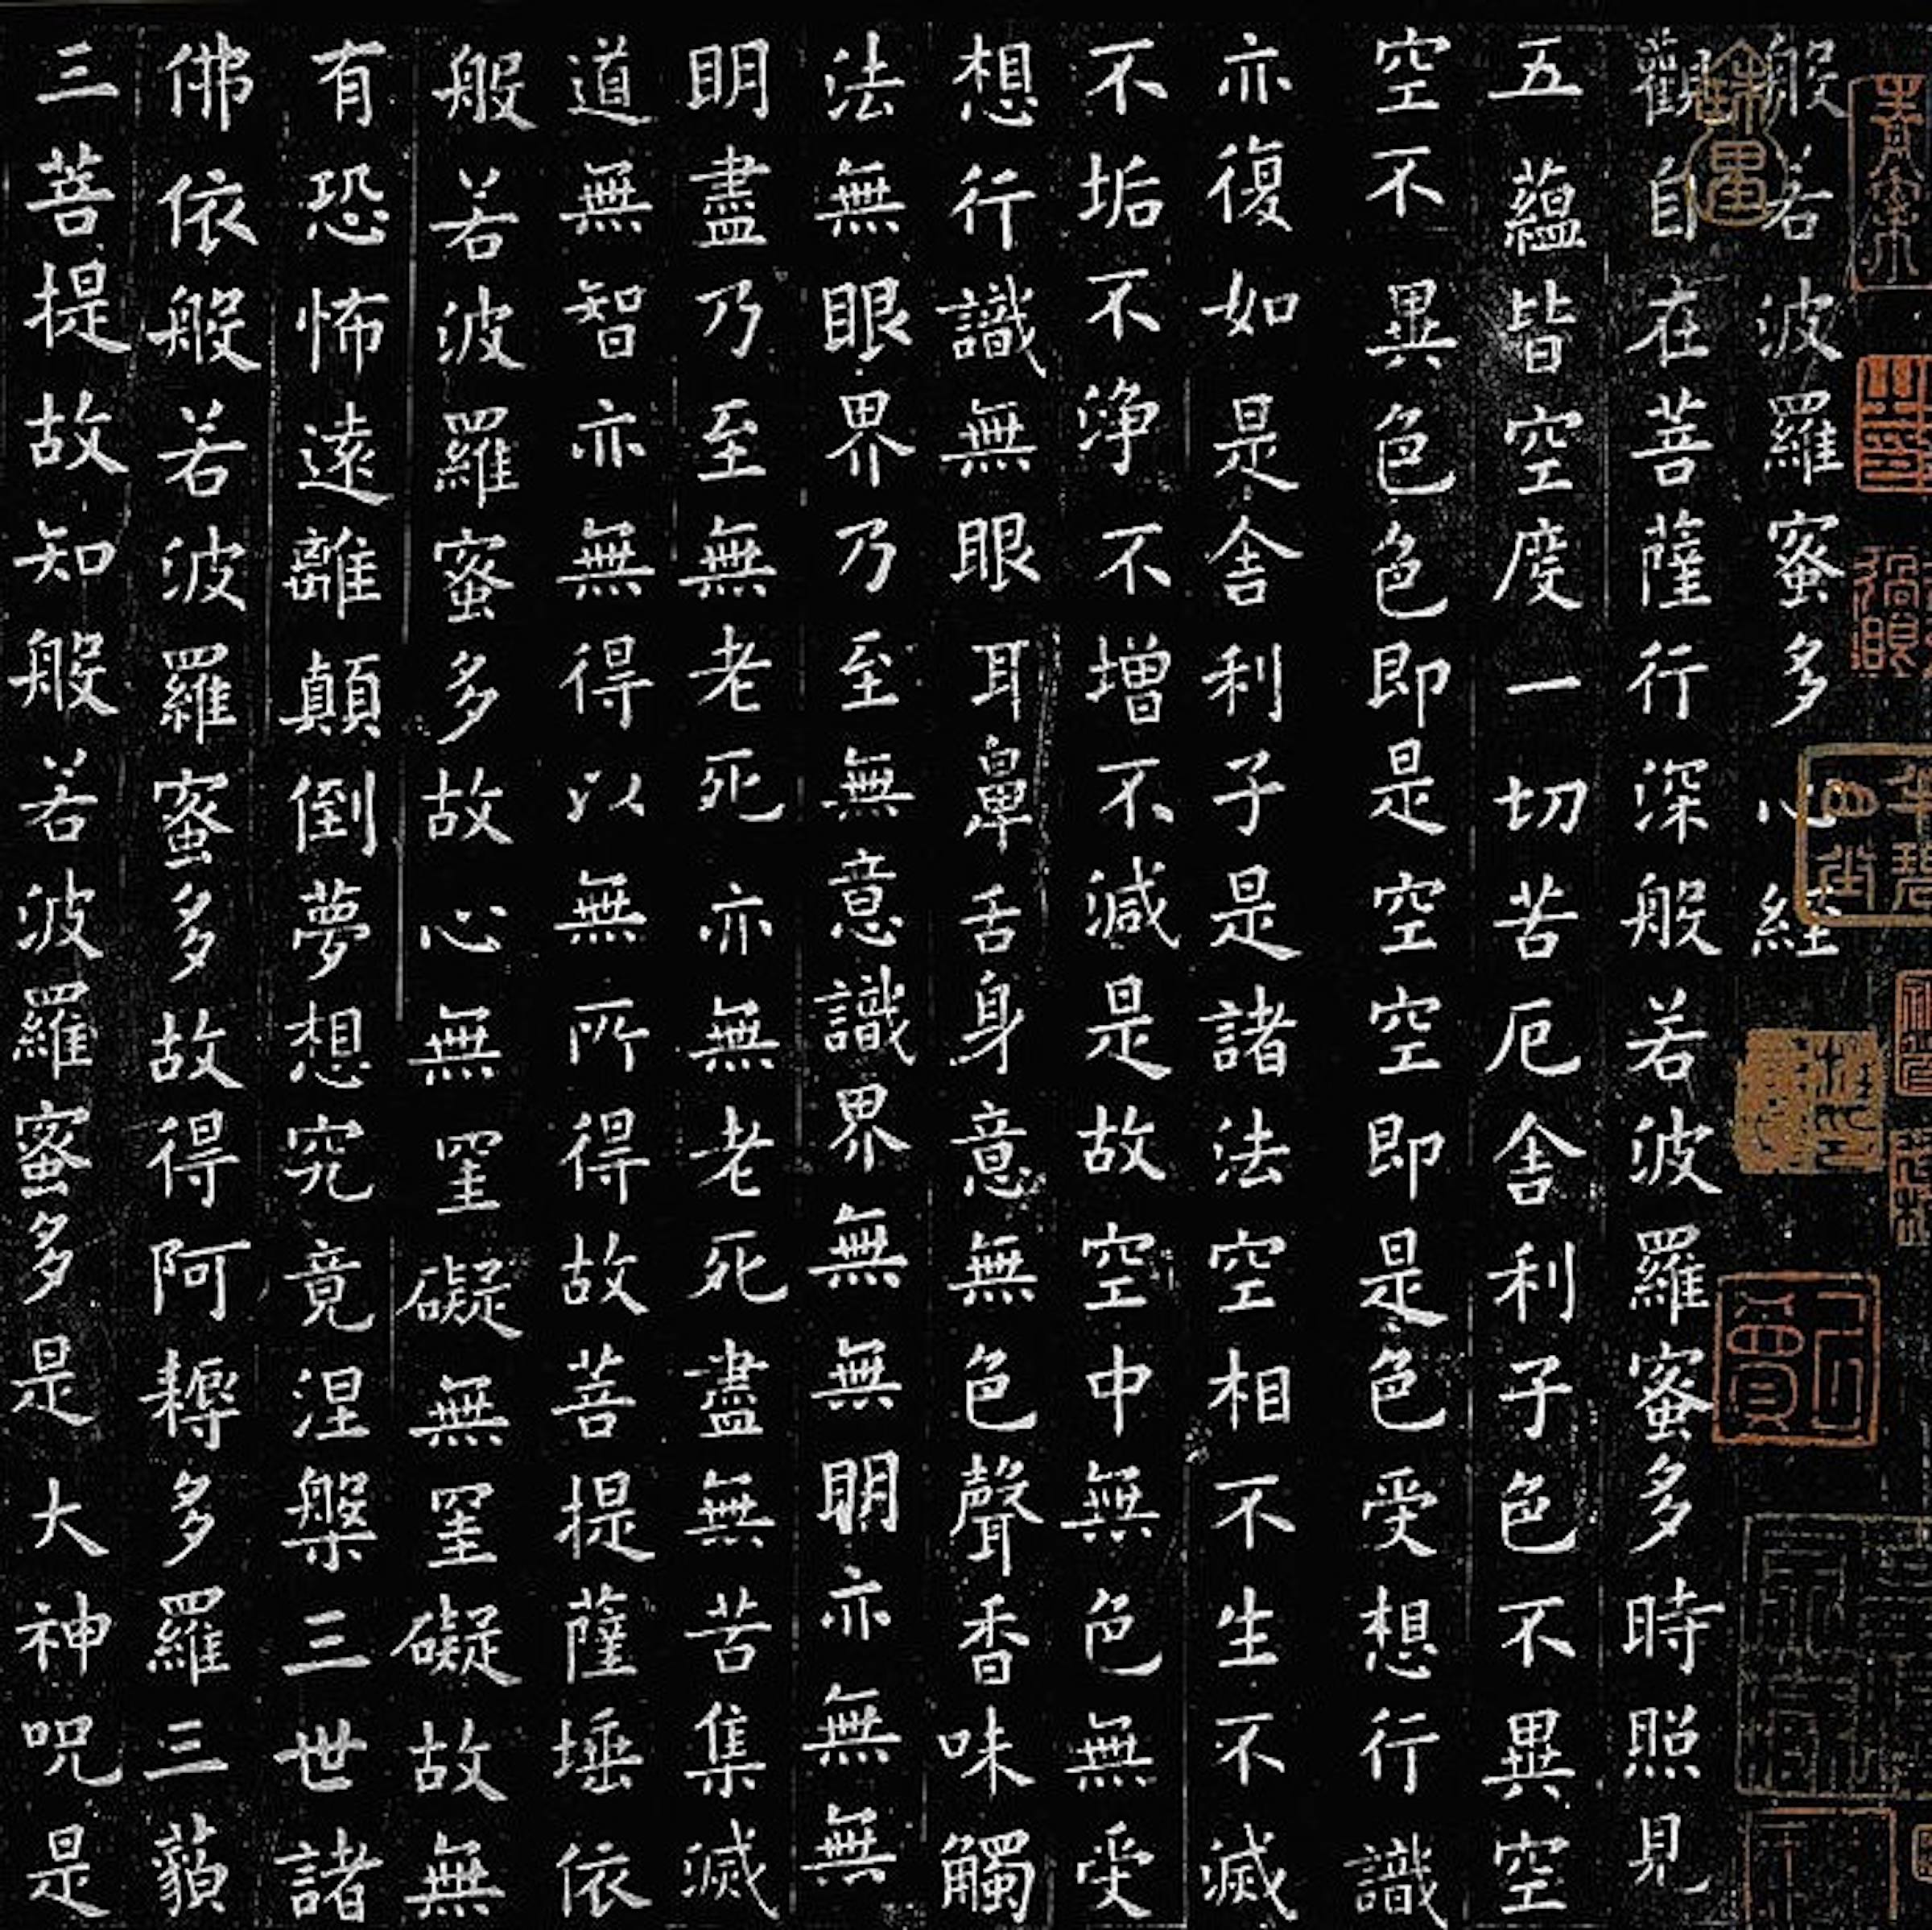 般若波羅蜜多心經
觀自在菩薩行深般若波羅蜜多時照見
五蘊皆空度一切苦厄舍利子色不異空
空不異色色即是空空即是色受想行識
亦復如是舍利子是諸法空相不生不滅
不垢不淨不增不減是故空中無色無受
想行識無眼耳鼻舌身意無色聲香味觸
法無眼界乃至無意識界無無明亦無無
明盡乃至無老死亦無老死盡無苦集滅
道無智亦無得以無所得故菩提薩埵依
般若波羅蜜多故心無罣礙無罣礙故無
有恐怖遠離顛倒夢想究竟涅槃三世諸
佛依般若波羅蜜多故得阿耨多羅三藐
三菩提故知般若波羅蜜多是大神呪是